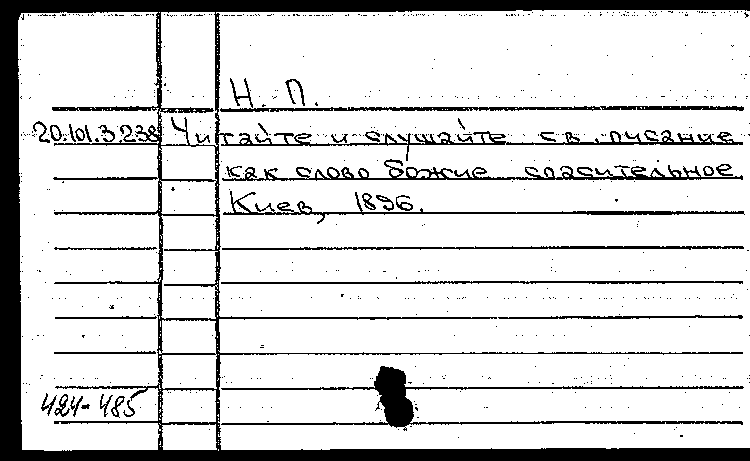 Н. П.
20.101.3.238 Читайте и слушайте св. писание
как слово божие спасительное
Киев, 1896.
424-485